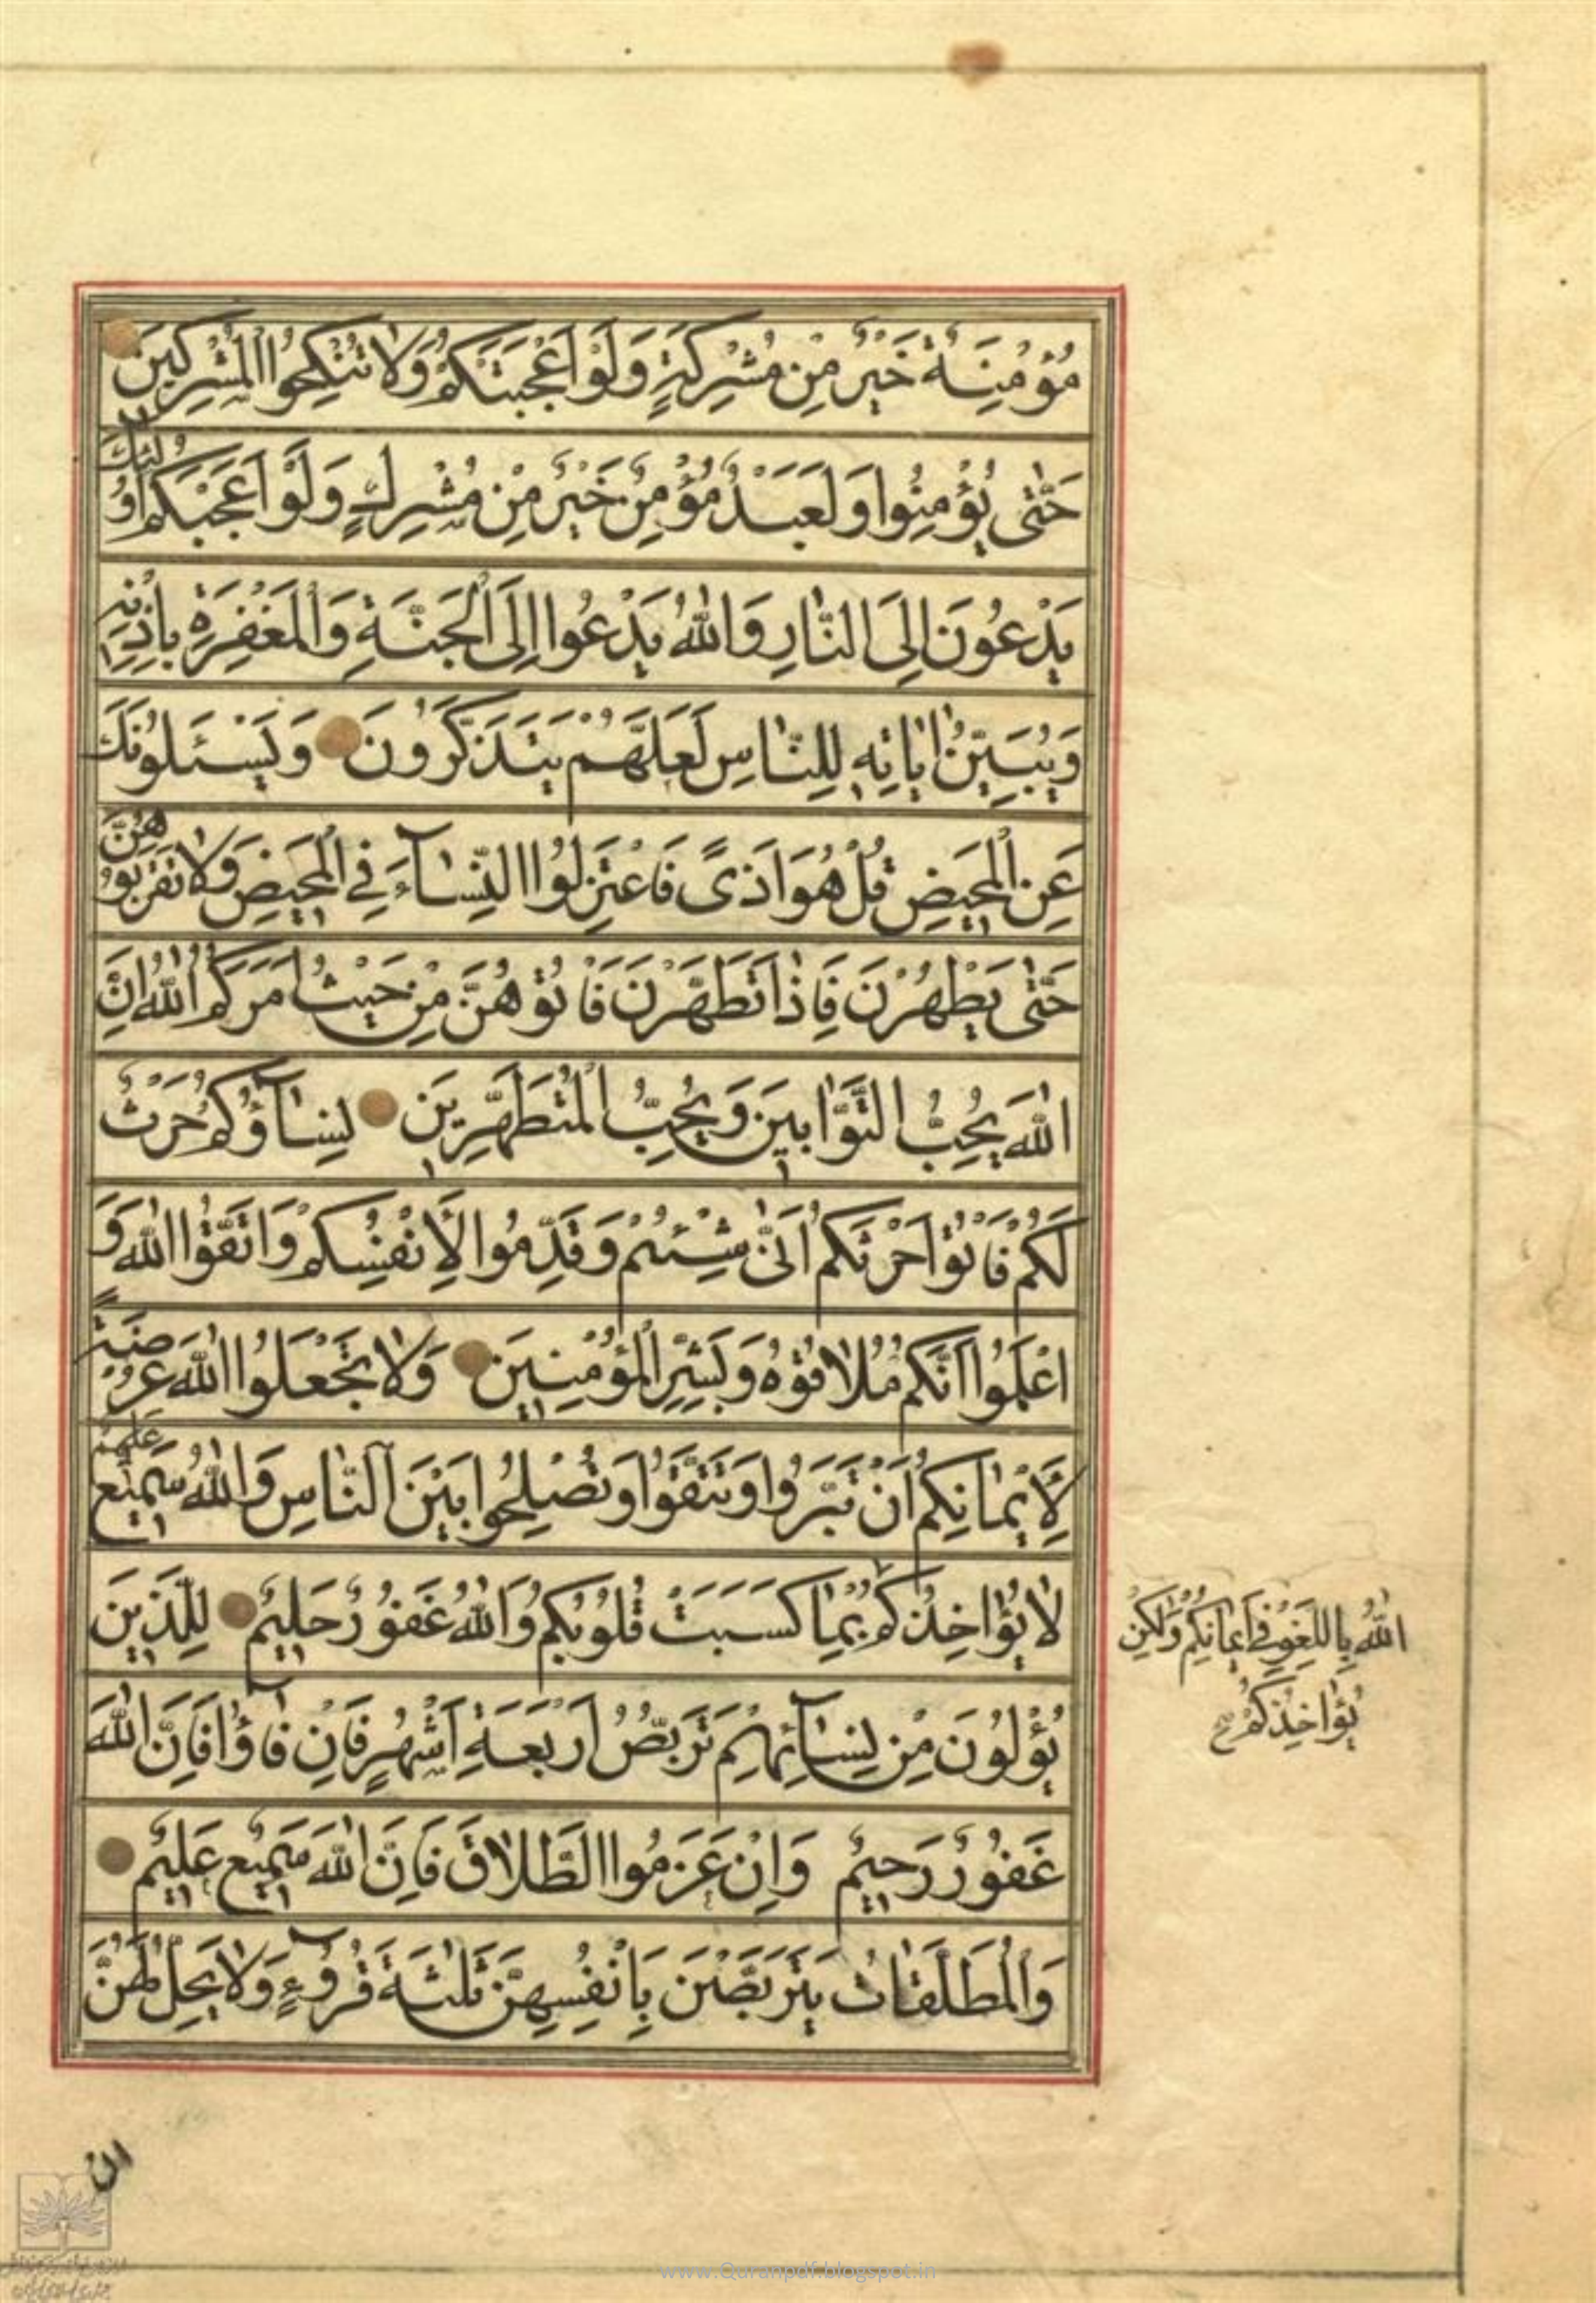 مُؤْمِنَةٌ خَيْرٌ مِنْ مُشْرِكَةٍ وَلَوْ اَعْجَبَتْكُمْ وَلَا تُنْكِحُوا الْمُشْرِكِينَ
حَتّٰى يُؤْمِنُوا وَلَعَبْدٌ مُؤْمِنٌ خَيْرٌ مِنْ مُشْرِكٍ وَلَوْ اَعْجَبَكُمْ اُولٰئِكَ
يَدْعُونَ اِلَى النَّارِ وَاللّٰهُ يَدْعُوا اِلَى الْجَنَّةِ وَالْمَغْفِرَةِ بِاِذْنِهٖ
وَيُبَيِّنُ اٰيَاتِهٖ لِلنَّاسِ لَعَلَّهُمْ يَتَذَكَّرُونَ وَيَسْـَٔلُونَكَ
عَنِ الْمَحِيضِ قُلْ هُوَ اَذًى فَاعْتَزِلُوا النِّسَآءَ فِي الْمَحِيضِ وَلَا تَقْرَبُوهُنَّ
حَتّٰى يَطْهُرْنَ فَاِذَا تَطَهَّرْنَ فَاْتُوهُنَّ مِنْ حَيْثُ اَمَرَكُمُ اللّٰهُ اِنَّ
اللّٰهَ يُحِبُّ التَّوَّابِينَ وَيُحِبُّ الْمُتَطَهِّرِينَ نِسَآؤُكُمْ حَرْثٌ
لَكُمْ فَاْتُوا حَرْثَكُمْ اَنّٰى شِئْتُمْ وَقَدِّمُوا لِاَنْفُسِكُمْ وَاتَّقُوا اللّٰهَ وَ
اعْلَمُوا اَنَّكُمْ مُلَاقُوهُ وَبَشِّرِ الْمُؤْمِنِينَ وَلَا تَجْعَلُوا اللّٰهَ عُرْضَةً
لِاَيْمَانِكُمْ اَنْ تَبَرُّوا وَتَتَّقُوا وَتُصْلِحُوا بَيْنَ النَّاسِ وَاللّٰهُ سَمِيعٌ عَلِيمٌ
لَا يُؤَاخِذُكُمُ بِمَا كَسَبَتْ قُلُوبُكُمْ وَاللّٰهُ غَفُورٌ حَلِيمٌ لِلَّذِينَ
يُؤْلُونَ مِنْ نِسَآئِهِمْ تَرَبُّصُ اَرْبَعَةِ اَشْهُرٍ فَاِنْ فَآؤُا فَاِنَّ اللّٰهَ
غَفُورٌ رَحِيمٌ وَاِنْ عَزَمُوا الطَّلَاقَ فَاِنَّ اللّٰهَ سَمِيعٌ عَلِيمٌ
وَالْمُطَلَّقَاتُ يَتَرَبَّصْنَ بِاَنْفُسِهِنَّ ثَلٰثَةَ قُرُوءٍ وَلَا يَحِلُّ لَهُنَّ
اللّٰهُ بِاللَّغْوِ فِي اَيْمَانِكُمْ وَلٰكِنْ
يُؤَاخِذُكُمْ
ان
www.Quranpdf.blogspot.in